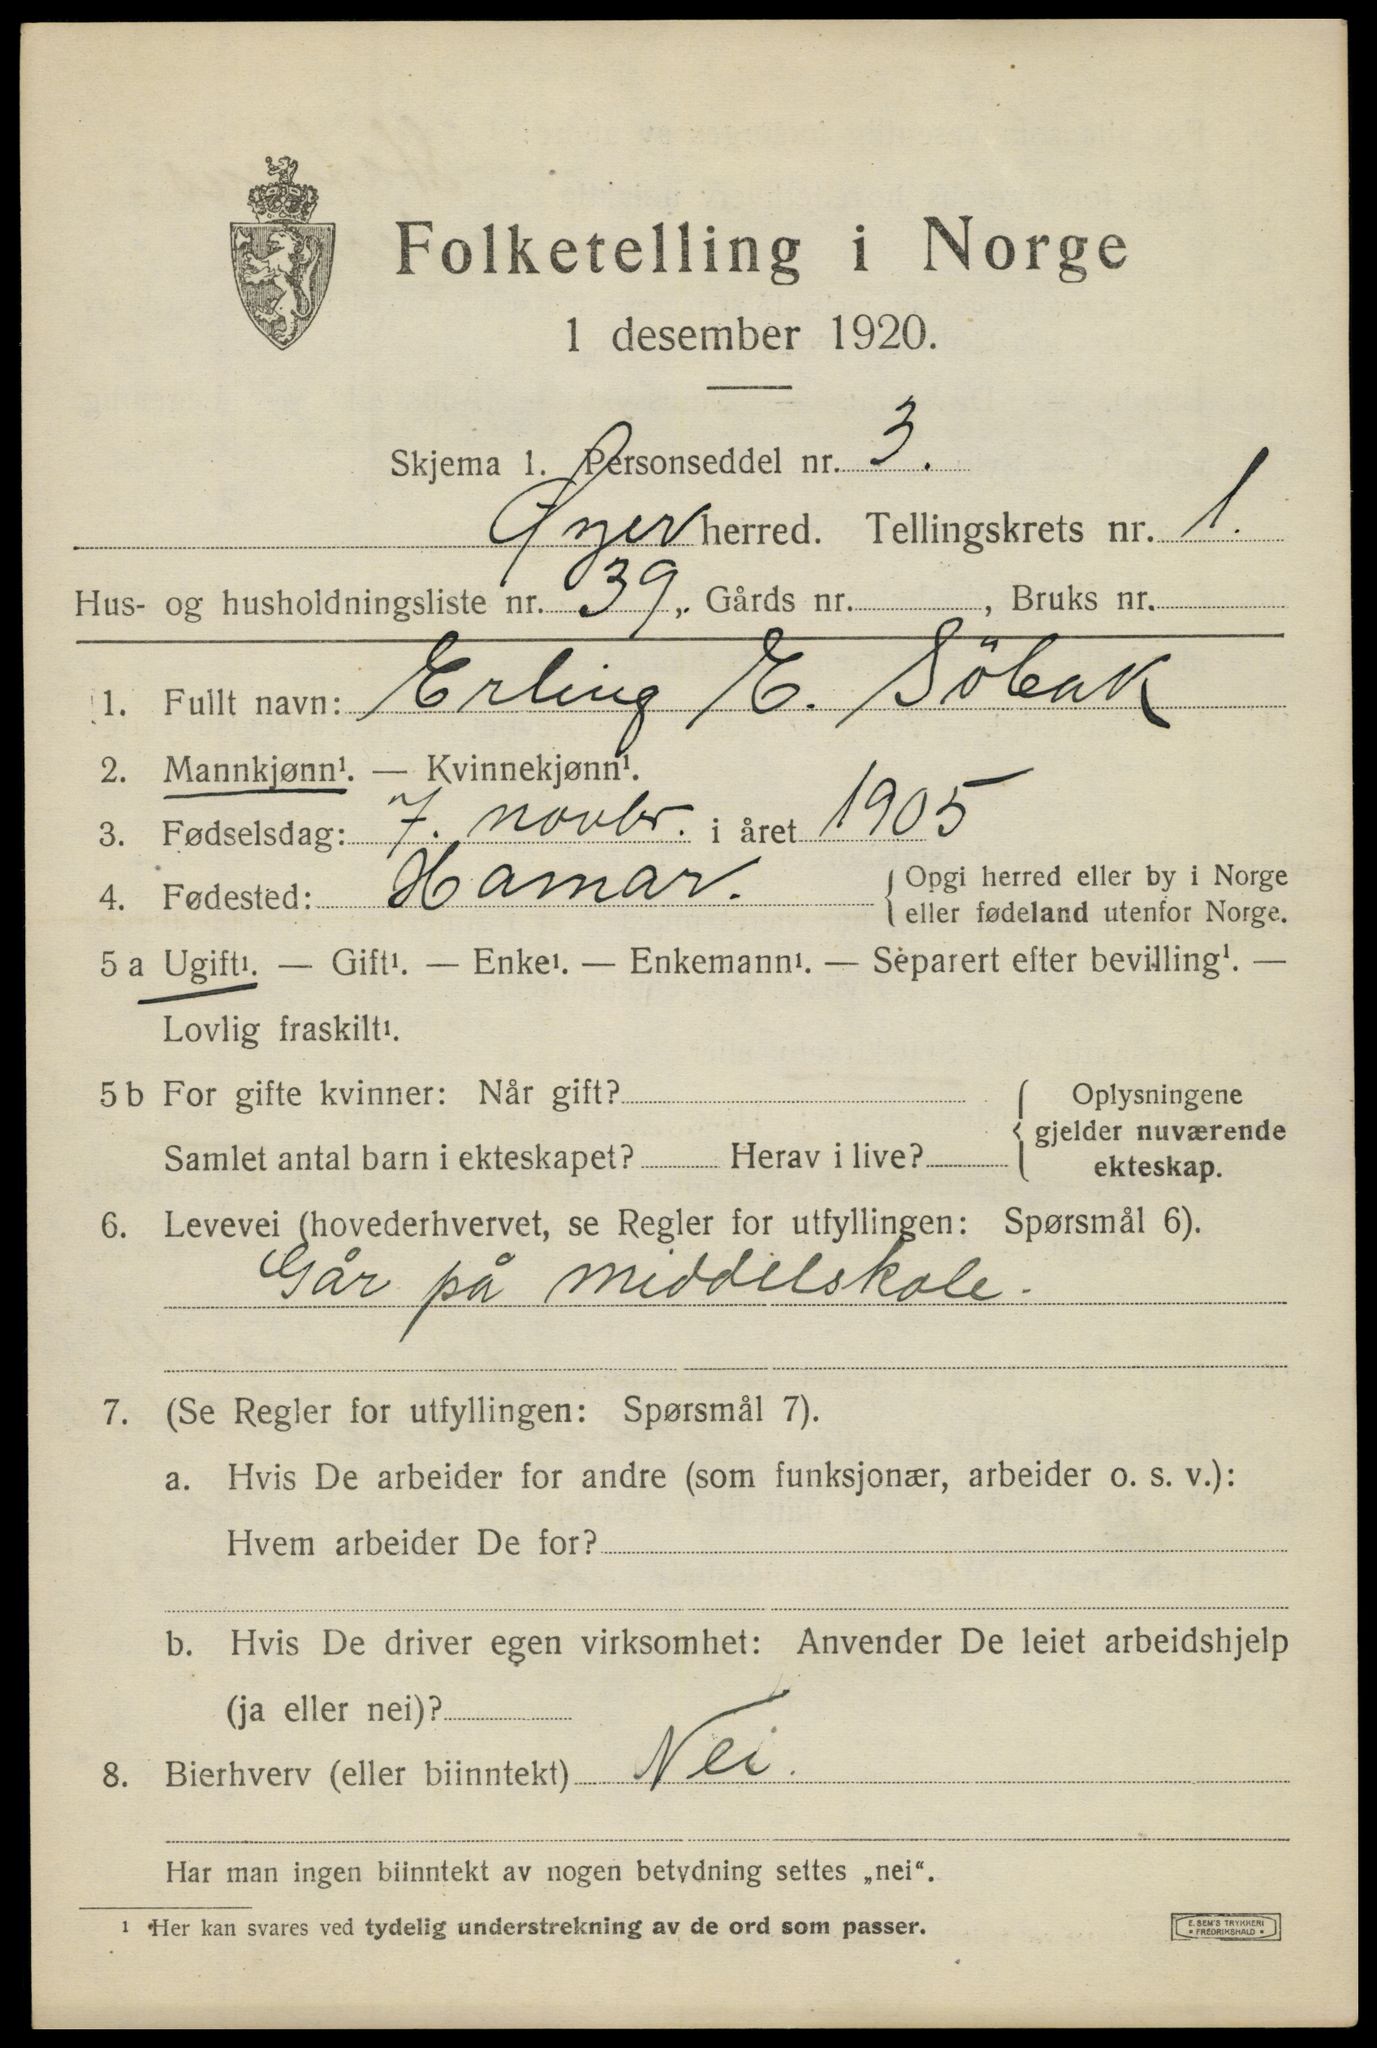 Folketelling i Norge
1 desember 1920.
Skjema 1. Personseddel nr. 3.
Øyer herred. Tellingskrets nr. 1.
Hus- og husholdningsliste nr. 39, Gårds nr. , Bruks nr.
1. Fullt navn: Erling E. Söbak
2. Mannkjønn¹. — Kvinnekjønn¹.
3. Fødselsdag: 7. novbr. i året 1905
4. Fødested: Hamar. Opgi herred eller by i Norge
eller fødeland utenfor Norge.
5 a Ugift¹. — Gift¹. — Enke¹. — Enkemann¹. — Separert efter bevilling¹. —
Lovlig fraskilt¹.
5 b For gifte kvinner: Når gift? Oplysningene
gjelder nuværende
Samlet antal barn i ekteskapet? Herav i live? ekteskap.
6. Levevei (hovederhvervet, se Regler for utfyllingen: Spørsmål 6).
Går på middelskole.
7. (Se Regler for utfyllingen: Spørsmål 7).
a. Hvis De arbeider for andre (som funksjonær, arbeider o. s. v.):
Hvem arbeider De for?
b. Hvis De driver egen virksomhet: Anvender De leiet arbeidshjelp
(ja eller nei)?
8. Bierhverv (eller biinntekt) Nei.
Har man ingen biinntekt av nogen betydning settes „nei“.
¹ Her kan svares ved tydelig understrekning av de ord som passer.
E. SEM'S TRYKKERI
• FREDRIKSHALD •